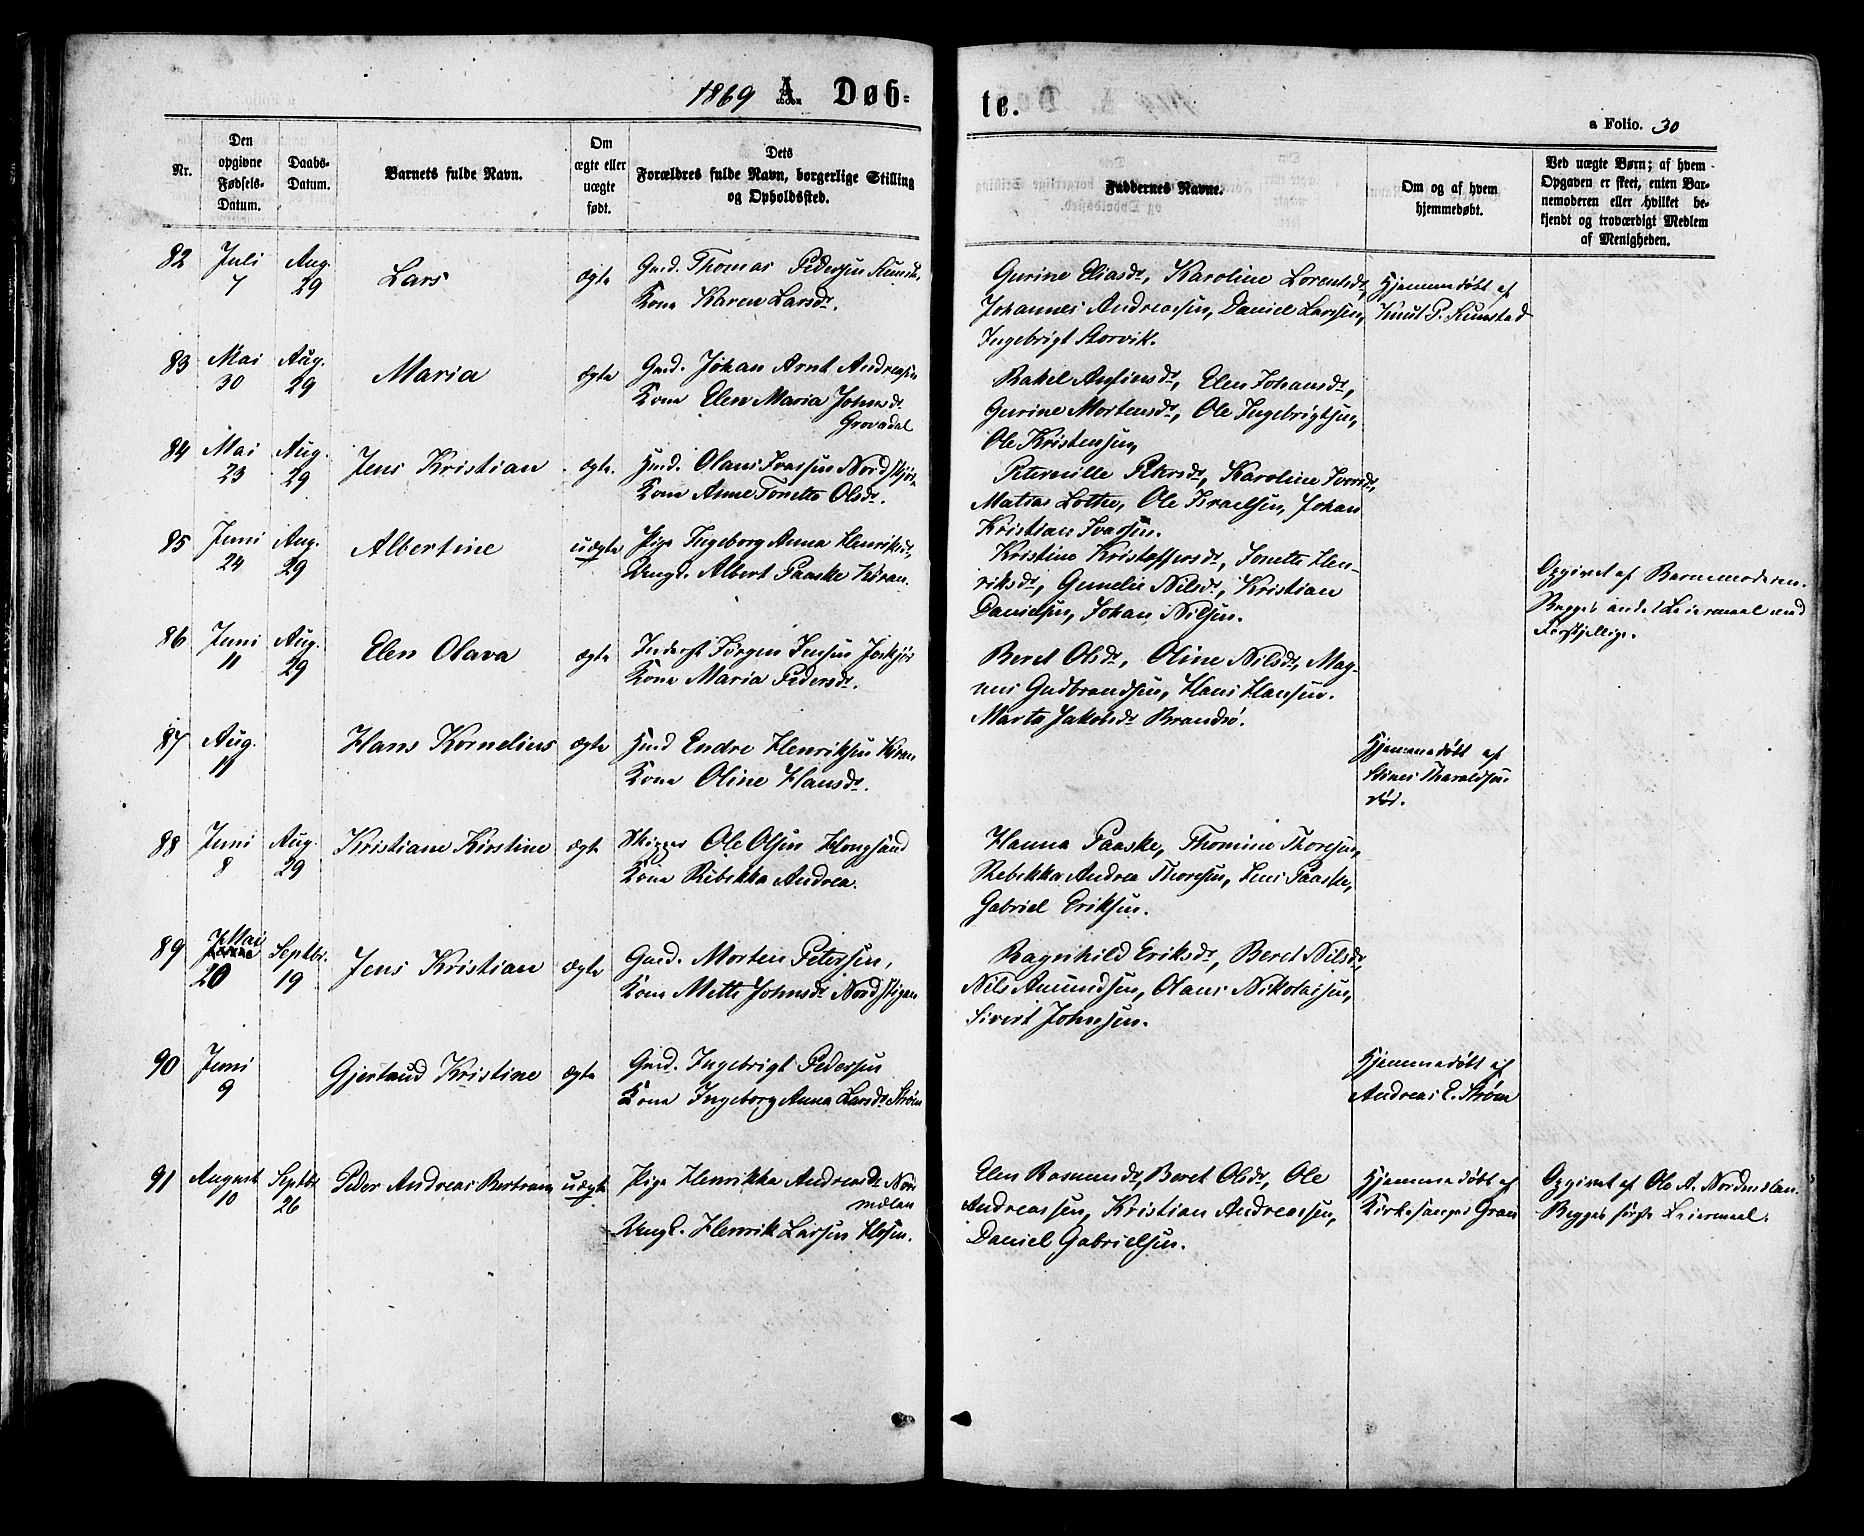 1869 A. Døb-
te.
a Folio. 30
Nr.
Den opgivne Fødsels-Datum.
Daabs-Datum.
Barnets fulde Navn.
Om ægte eller uægte født.
Dets Forældres fulde Navn, borgerlige Stilling og Opholdssted.
Faddernes Navne.
Om og af hvem hjemmedøbt.
Ved uægte Børn; af hvem Opgaven er skeet, enten Barnemoderen eller hvilket bekjendt og troværdigt Medlem af Menigheden.
82 Juli 7 Aug. 29 Lars ægte Gmd. Thomas Pedersen
Kone Karen Larsdr.
Gurine Eliasdr, Karoline Lorentsdr,
Johannes Andreassen, Daniel Larssen,
Ingebrigt Storvik.
Hjemmedøbt af
Knut P. Kumstad
83 Mai 30 Aug. 29 Maria ægte Gmd. Johan Arnt Andreasen
Kone Elen Maria Johnsdr
Grovadal
Rakel Antinsdr, Elen Johansdr,
Gurine Mortensdr, Ole Ingebrigtsen,
Ole Kristensen,
84 Mai 23 Aug. 29 Jens Kristian ægte. Hmd. Olaus Ivarsen
Kone Anne Tonette Olsdr.
Peternille Petersdr, Karoline Iversdr,
Matias Lothe, Ole Israelsen, Johan
Kristian Ivarsen.
85 Juni 24 Aug. 29 Albertine uægte Pige Ingeborg Anna Henriksdr,
Ungk. Albert Paaske Høran.
Kristine Kristoffersdr, Tonette Hen-
riksdr, Gunelie Nilsdr, Kristian
Danielsen, Johan Nilsen.
Opgivet af Barnemoderen.
Begges andet Leiermaal med
Forskjellige.
86 Juni 11 Aug. 29 Elen Olava ægte Inderst Jørgen Jensen
Kone Maria Pedersdr.
Beret Olsdr, Oline Nilsdr, Mag-
nus Gudbrandsen, Hans Hansen.
Marta Jakobsdr Brandsø.
87 Aug. 11 Hans Kornelius ægte Hmd Endre Henriksen Høran
Kone Oline Hansdr.
Hjemmedøbt af
Tharaldsen
død.
88 Juni 8 Aug. 29 Kristiane Kirstine ægte Skipper Ole Olsen Hongsand
Kone Rebekka Andrea.
Hanna Paaske, Thomine Thoresen,
Rebekka Andrea Thoresen, Jens Paaske,
Gabriel Eriksen.
89 Mai 20 Septbr. 19 Jens Kristian ægte Gmd. Morten Petersen,
Kone Mette Johnsdr Nordstigan
Ragnhild Eriksdr, Beret Nilsdr,
Nils Amundsen, Olaus Nikolaisen,
Sivert Johnsen.
90 Juni 9 Gjertrud Kristine ægte Gmd. Ingebrigt Pedersen
Kone Ingeborg Anna Larsdr Strøm
Hjemmedøbt af
Andreas E. Strøm
91 August 10 Septbr 26 Peder Andreas Bertram uægte Pige Henrikka Andreasdr
Ungk. Henrik Larsen Hofsen.
Elen Rasmusdr, Beret Olsdr, Ole
Andreassen, Kristian Andreassen,
Daniel Gabrielsen.
Hjemmedøbt af
Kirkesanger Gran
Opgivet af Ole A.
Begges første Leiermaal.